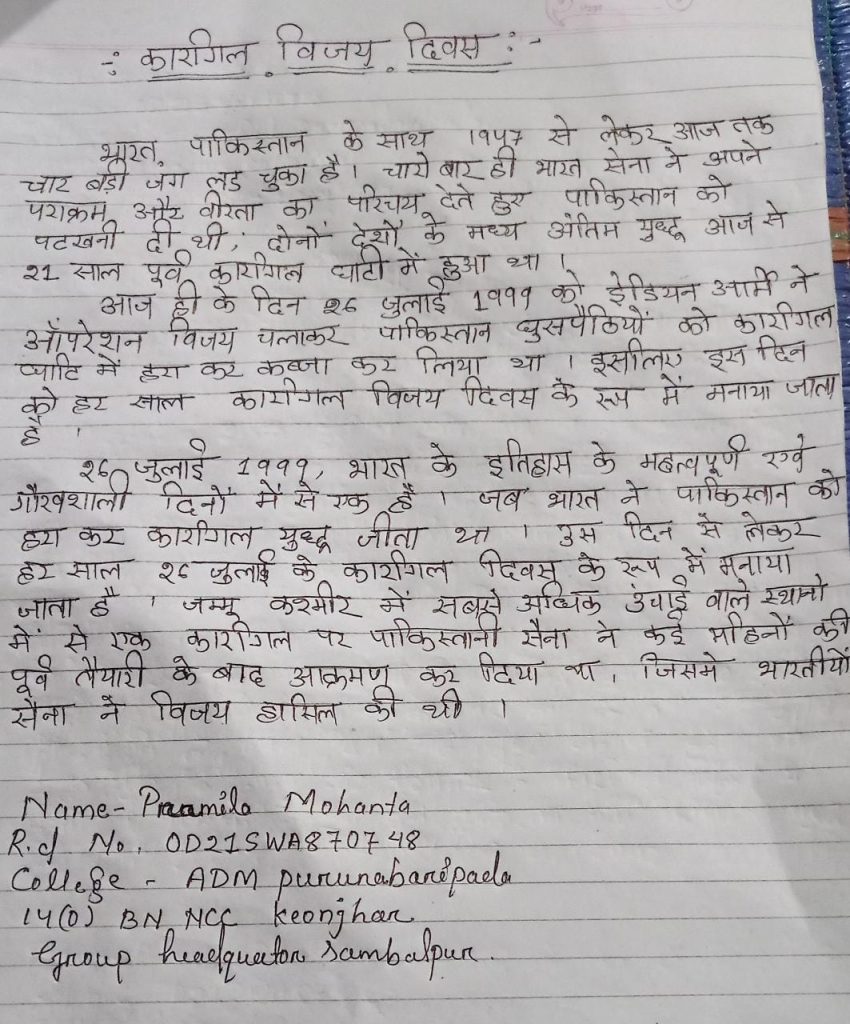 -: कारगिल विजय दिवस :-
भारत, पाकिस्तान के साथ 1947 से लेकर आज तक
चार बड़ी जंग लड चुका है। चारो बार ही भारत सेना ने अपने
पराक्रम और वीरता का परिचय देते हुए पाकिस्तान को
पटखनी दी थी, दोनों देशों के मध्य अंतिम युद्ध आज से
21 साल पूर्व कारगिल घाटी में हुआ था।
आज ही के दिन 26 जुलाई 1999 को इंडियन आर्मी ने
ऑपरेशन विजय चलाकर पाकिस्तान घुसपैठियों को कारगिल
घाटि में हरा कर कब्जा कर लिया था। इसीलिए इस दिन
को हर साल कारगिल विजय दिवस के रूप में मनाया जाता
है।
26 जुलाई 1999, भारत के इतिहास के महत्वपूर्ण एवं
गौरवशाली दिनों में से एक है। जब भारत ने पाकिस्तान को
हरा कर कारगिल युद्ध जीता था। उस दिन से लेकर
हर साल 26 जुलाई के कारगिल दिवस के रूप में मनाया
जाता है। जम्मू कश्मीर में सबसे अधिक उंचाई वाले स्थानो
में से एक कारगिल पर पाकिस्तानी सेना ने कई महिनों की
पूर्व तैयारी के बाद आक्रमण कर दिया था, जिसमे भारतीयों
सेना ने विजय हासिल की थी।
Name- Pramila Mohanta
R.d No. OD21SWA870748
College - ADM purunabaripada
14(O) BN NCC Keonjhar
Group headquator Sambalpur.